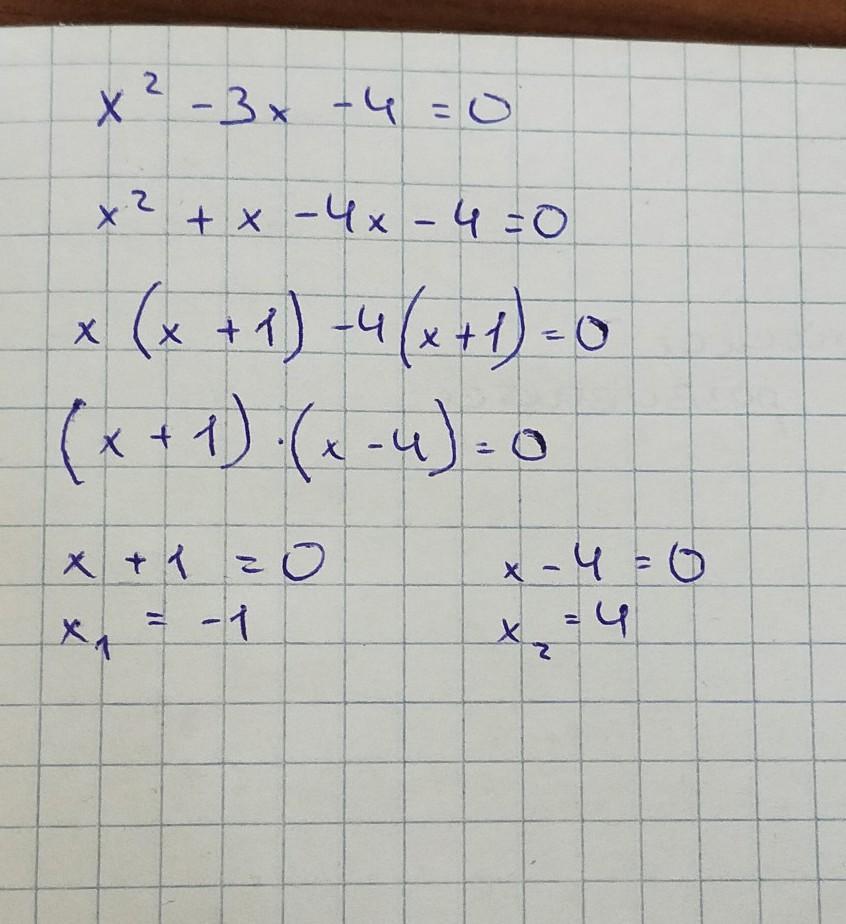 x² - 3x - 4 = 0
x² + x - 4x - 4 = 0
x (x + 1) - 4 (x + 1) = 0
(x + 1) · (x - 4) = 0
x + 1 = 0 x - 4 = 0
x₁ = -1 x₂ = 4